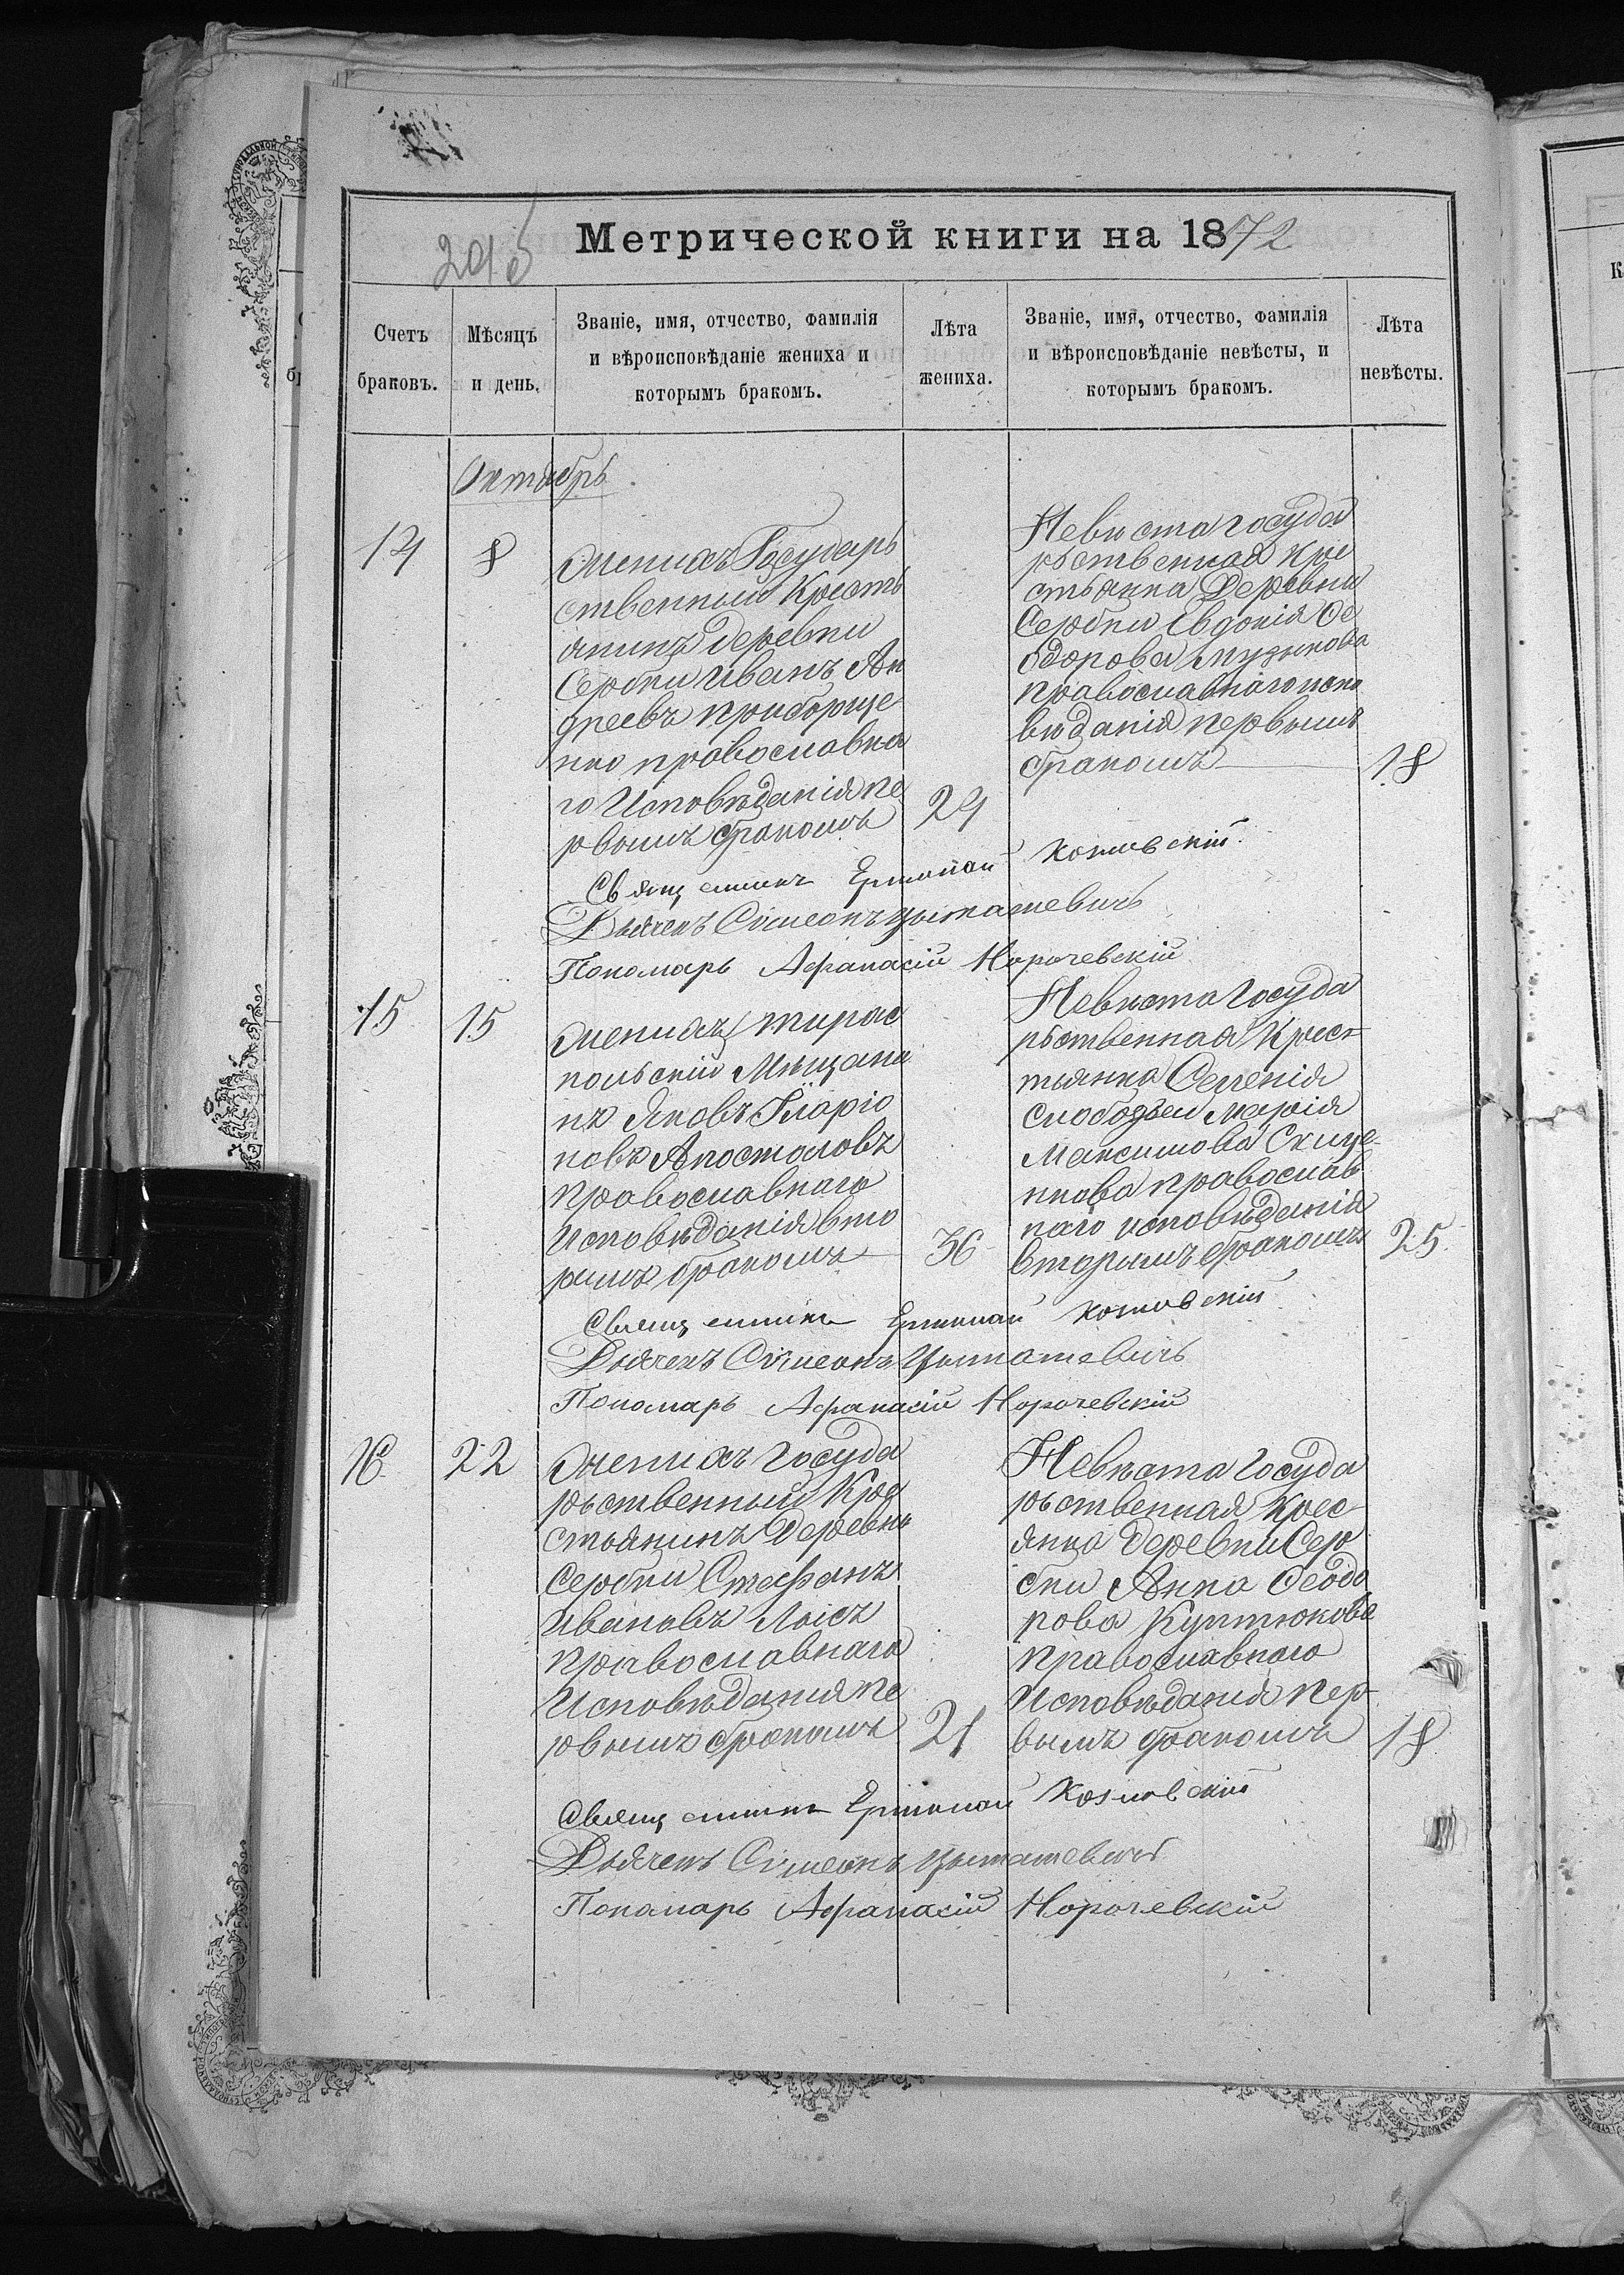 Метрической книги на 1872
295
Счетъ браковъ.
Мѣсяцъ и день.
Званіе, имя, отчество, фамилія
и вѣроисповѣданіе жениха и
которымъ бракомъ.
Лѣта жениха.
Званіе, имя, отчество, фамилія
и вѣроисповѣданіе невѣсты, и
которымъ бракомъ.
Лѣта невѣсты.
Октябрь
14
8
Женихъ Государь
ственный Кресть
янинъ деревни
Сербки Иванъ Ан
дреевъ Приборще
нко православна
го Исповѣданія пе
рвымъ бракомъ
24
Невѣста Госуда
рственная Кре
стьянка Деревни
Сербки Евдокія Ѳе
одорова Музыкова
Православнаго испо
вѣданія первымъ
бракомъ
18
Священникъ Ермолай Козловскій
Дьячекъ Симеонъ
Пономарь Афанасій Норочевскій
15
15
Женихъ тирас
польскій Мѣщани
нъ Яковъ Іларіо
новъ Апостоловъ
Православнаго
Исповѣданія вто
рымъ бракомъ
36
Невѣста Госуда
рьственная Крест
тьянка Селенія
слободзеи Марія
Максимова Скице
нкова православ
наго исповѣданія
вторымъ бракомъ
25
Священникъ Ермолай Козловскій
Дьячекъ Симеонъ
Пономарь Афанасій Норочевскій
16
22
Женихъ Госуда
рьственный Кре
стьянинъ Деревни
Сербки Стефанъ
Ивановъ Лысъ
Православнаго
Исповѣданія пе
рвымъ бракомъ
21
Невѣста Госуда
рьственная Крес
янка Деревни Сер
бки Анна Ѳеодо
рова Куптюкова
Православнаго
Исповѣданія пер
вымъ бракомъ
18
Священникъ Ермолай Козловскій
Дьячекъ Симеонъ
Пономарь Афанасій Норочевскій